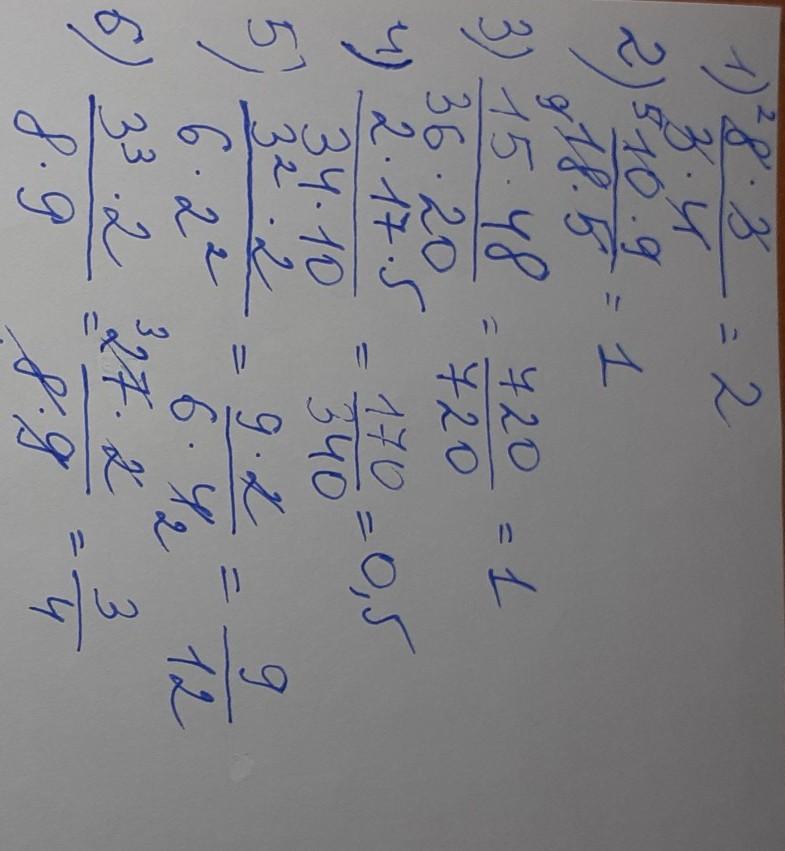 1) ²8·3/3·4 = 2
2) ⁵10·9/⁹18·5 = 1
3) 15·48/36·20 = 720/720 = 1
4) 2·17·5/34·10 = 170/340 = 0,5
5) 3²·2/6·2² = 9·2/6·4₂ = 9/12
6) 3³·2/8·9 = ³27·2/8·9 = 3/4